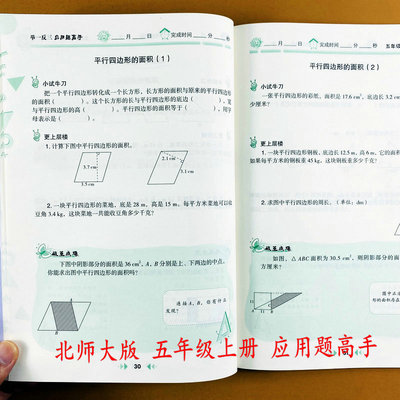 举一反三应用题高手
____月____日 完成时间____分____秒
平行四边形的面积（1）
小试牛刀
把一个平行四边形转化成一个长方形，长方形的面积与原来的平行四边形
的面积（　　）。这个长方形的长与平行四边形的底边（　　），宽
与平行四边形的高（　　）。平行四边形的面积等于（　　），用字
母表示是（　　）。
更上层楼
1. 计算下图中平行四边形的面积。
3.7 cm
3.5 cm
2.1 cm
3.1 cm
2. 一块平行四边形的菜地，底是 28 m，高是 15 m，每平方米菜地可以收
豆角 3.4 kg，这块菜地一共能收豆角多少千克？
下图中阴影部分的面积是 36 cm²，A，B 分别是上、下两边的中点。
你能求出图中平行四边形的面积吗？
A
B
连接 A，B，你有什么
发现？
30
____月____日 完成时间____分____秒
五年级
平行四边形的面积（2）
小试牛刀
一张平行四边形的彩纸，面积是 17.6 cm²，底边长 3.2 c
少厘米？
更上层楼
1. 一块平行四边形钢板，底边长 12.5 m，高 6 m，它的面
如果每平方米的钢板重 45 kg，这块钢板重多少千克？
2. 求图中平行四边形的周长。（单位：dm）
如图，△ABC 面积为 30.5 cm²，则阴影部分的面
方厘米？
图中正方
形的面积存在
北师大版 五年级上册 应用题高手